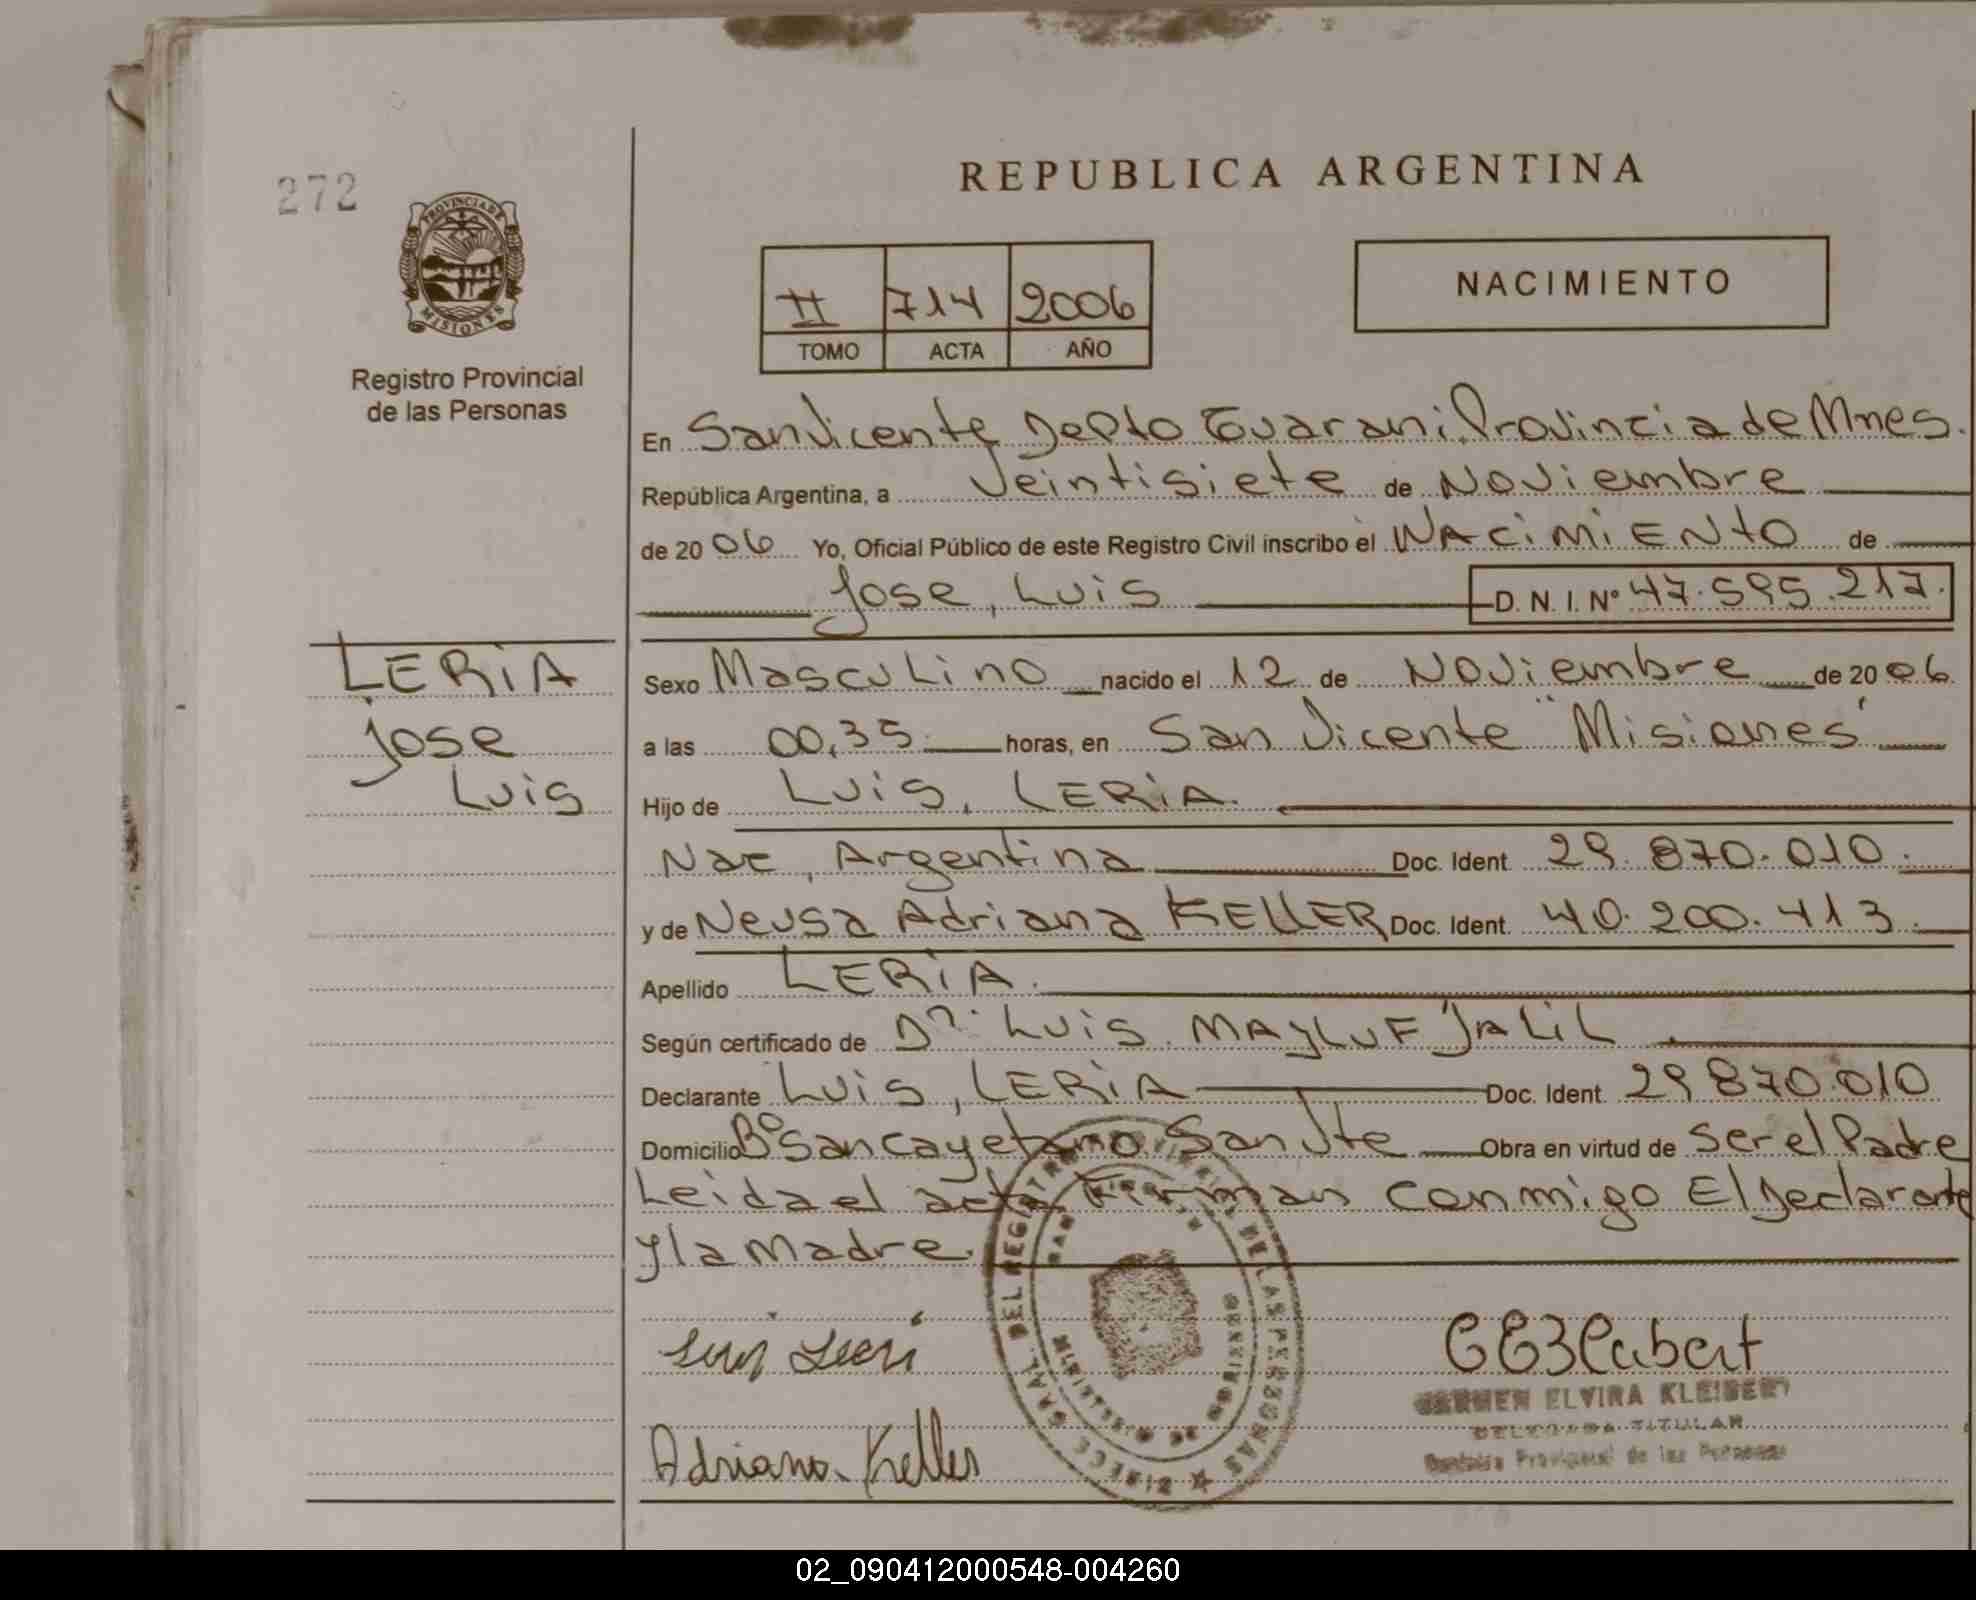 272
PROVINCIA DE
MISIONES
Registro Provincial
de las Personas
REPUBLICA ARGENTINA
II 714 2006
TOMO ACTA AÑO
NACIMIENTO
En San Vicente Depto Guarani Provincia de Mnes.
República Argentina, a Veintisiete de Noviembre
de 2006 Yo, Oficial Público de este Registro Civil inscribo el NACiMiENto de
Jose, Luis D. N. I. Nº 47.595.217.
LERiA
Jose
Luis
Sexo Masculino nacido el 12 de Noviembre de 2006
a las 00,35 horas, en San Vicente "Misiones"
Hijo de Luis, LERiA.
Nac, Argentina Doc. Ident. 29.870.010.
y de Neusa Adriana KELLER Doc. Ident. 40.200.413.
Apellido LERiA.
Según certificado de Dr. Luis MAYLUF JALiL
Declarante Luis, LERiA Doc. Ident. 29870.010
Domicilio Bº San Cayetano San Vte Obra en virtud de ser el Padre
Leida el acta Firman conmigo El Declarante
y la Madre.
Adriana Keller
CARMEN ELVIRA KLEIBERT
DELEGADA TITULAR
Provincial de las Personas
DIRECC. GRAL. DEL REGISTRO DE LAS PERSONAS
02_090412000548-004260